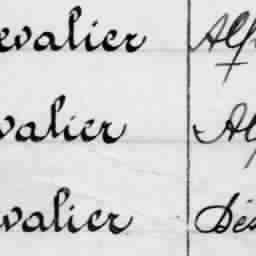 evalier Alf
valier Al
valier Dés